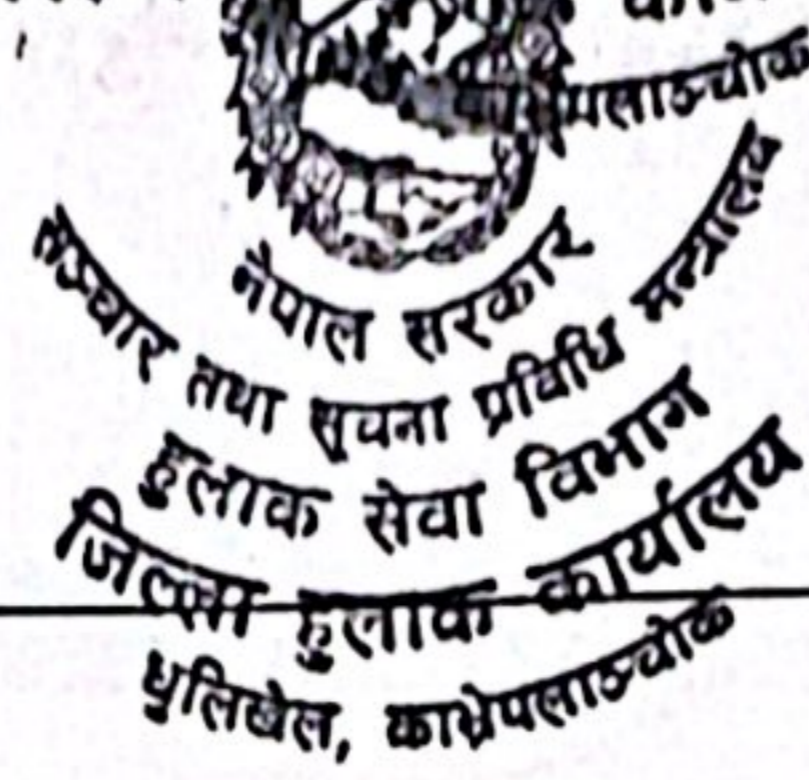 नेपाल सरकार
सञ्चार तथा सूचना प्रविधि मन्त्रालय
हुलाक सेवा विभाग
जिल्ला हुलाक कार्यालय
धुलिखेल, काभ्रेपलाञ्चोक